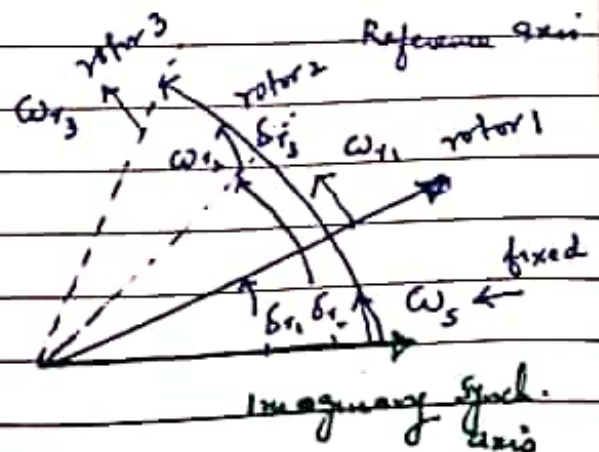 Reference axis
rotor 3
rotor 2
rotor 1
ωr3
ωr2
δr3
ωr1
fixed
δr1
δr2
ωs
Imaginary Synch.
axis